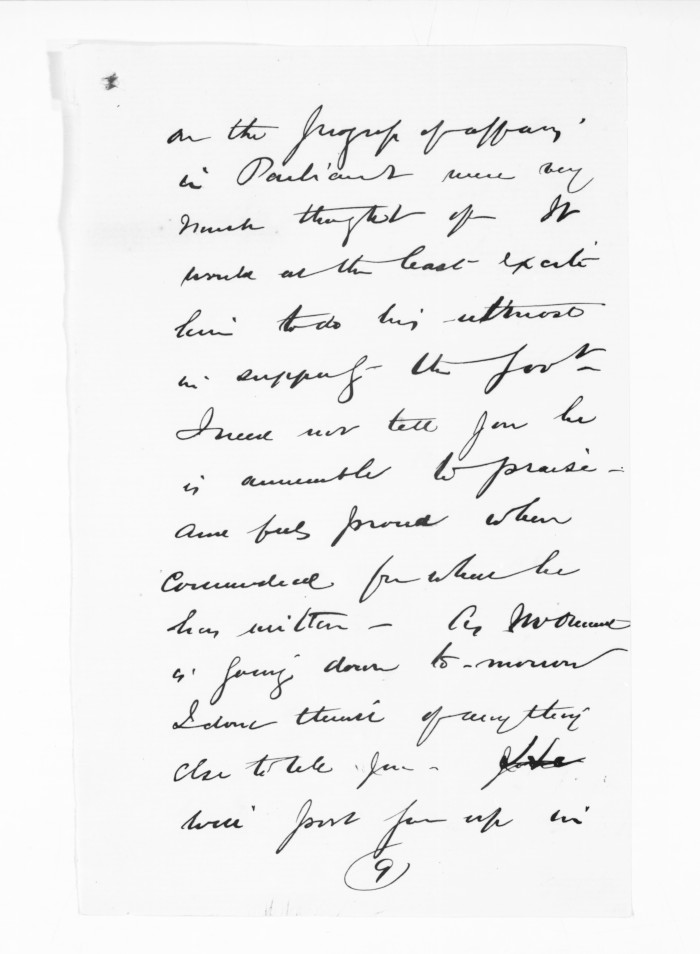 on the progress of affairs
in Parliament were very
much thought of. It
would at the least excite
him to do his utmost
in supporting the Govt -
I need not tell you he
is amenable to praise -
and feels proud when
commended for what he
has written - As
is going down to-morrow
I dont think of anything
else to tell you -
will post you up in
(9)